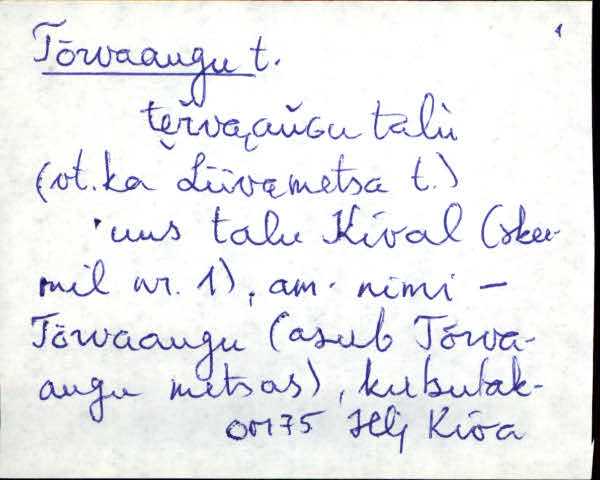 1
Tõrvaaugu t.
tẹřvaˬaùɢu talù
(vt. ka Liivametsa t.)
'uus talu Kival (skee-
mil nr. 1), am. nimi –
Tõrvaaugu (asub Tõrva-
augu metsas), kutsutak-
175 Hlj Kiva